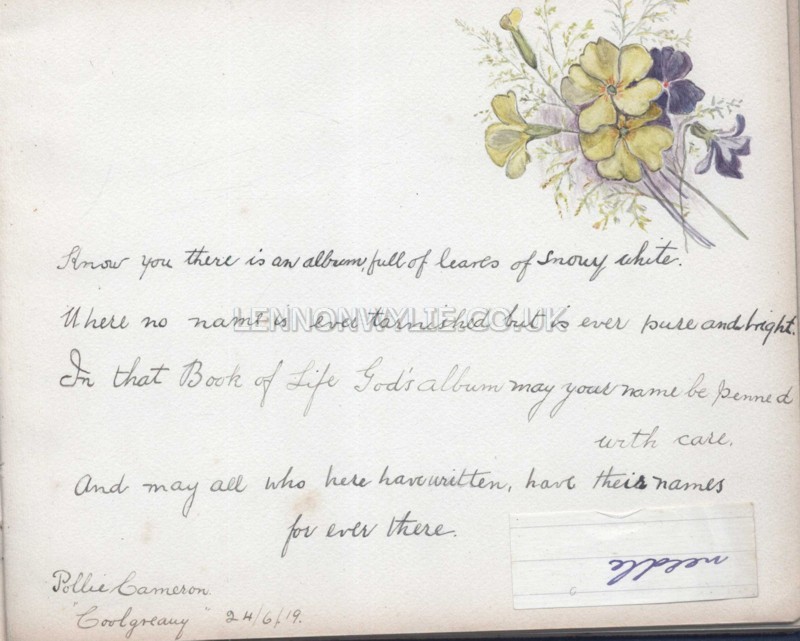 Know you there is an album, full of leaves of snowy white.
Where no name is ever tarnished but is ever pure and bright.
LENNONWYLIE.CO.UK
In that Book of Life God's album may your name be penned
with care.
And may all who here have written, have their names
for ever there.
needle
Pollie Cameron.
"Coolgreany" 24/6/19.